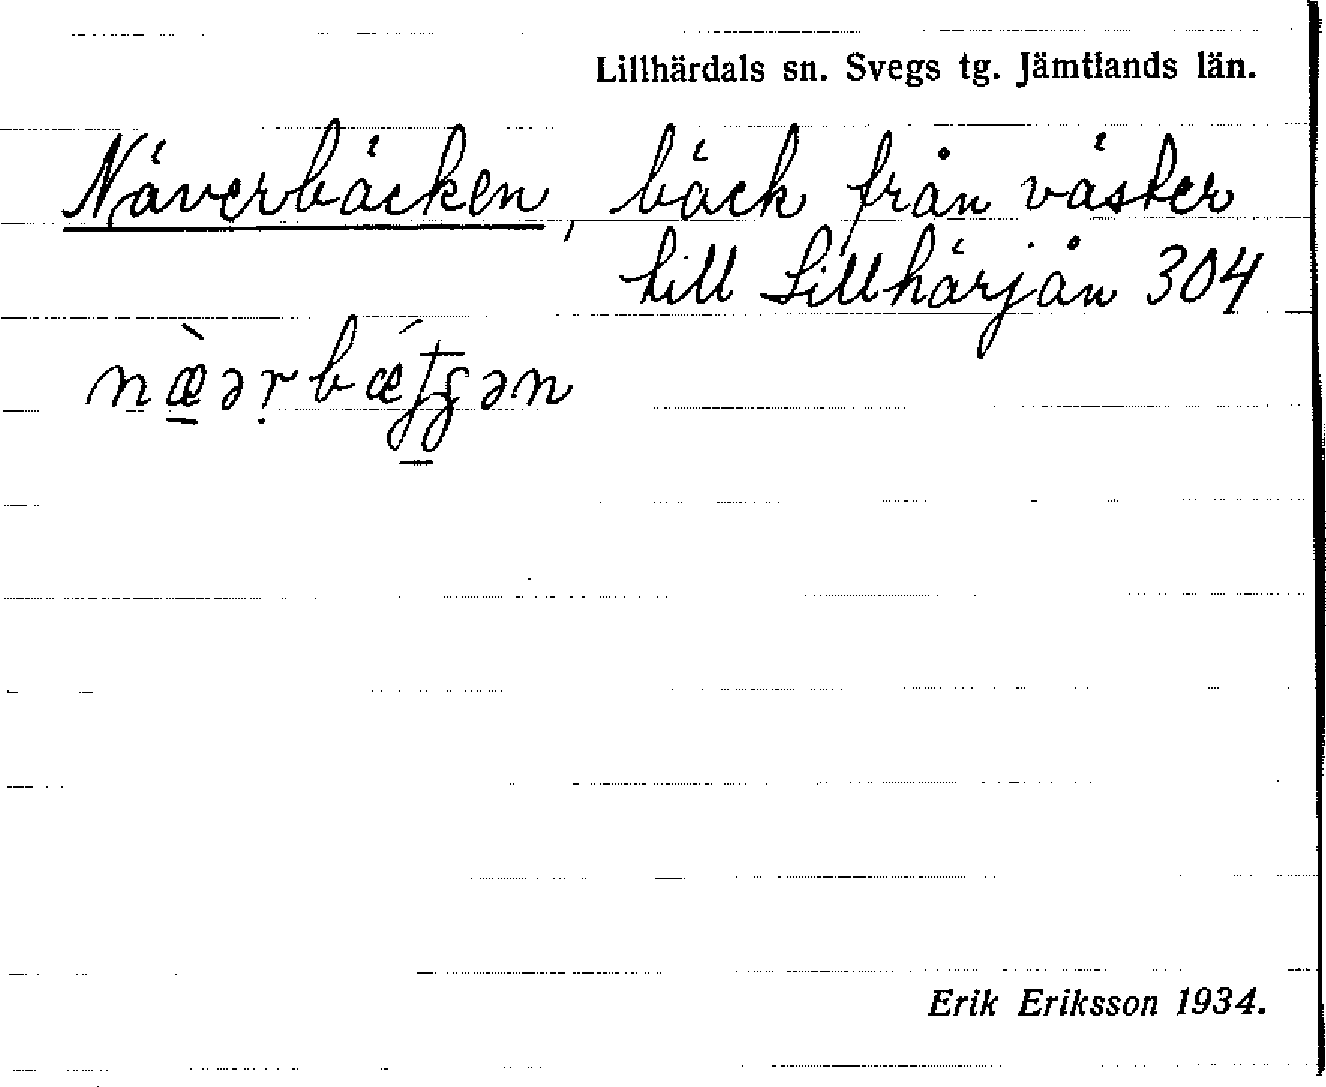 Lillhärdals sn. Svegs tg. Jämtlands län.
Näverbäcken, bäck från väster
till Lillhärjån 304
næ̱̀əṛbǽʈʂən
Erik Eriksson 1934.